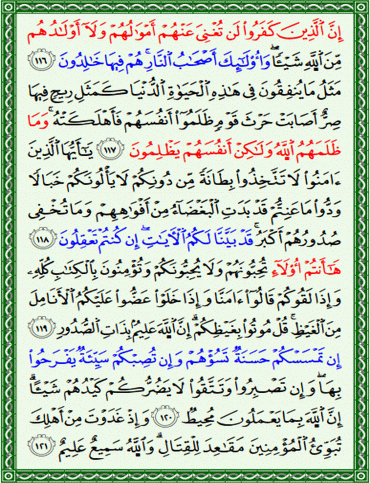 إِنَّ الَّذِينَ كَفَرُوا لَن تُغْنِيَ عَنْهُمْ أَمْوَالُهُمْ وَلَا أَوْلَادُهُم
مِّنَ اللَّهِ شَيْئًا ۖ وَأُولَٰئِكَ أَصْحَابُ النَّارِ ۚ هُمْ فِيهَا خَالِدُونَ ١١٦
مَثَلُ مَا يُنفِقُونَ فِي هَٰذِهِ الْحَيَوٰةِ الدُّنْيَا كَمَثَلِ رِيحٍ فِيهَا
صِرٌّ أَصَابَتْ حَرْثَ قَوْمٍ ظَلَمُوا أَنفُسَهُمْ فَأَهْلَكَتْهُ ۚ وَمَا
ظَلَمَهُمُ اللَّهُ وَلَٰكِنْ أَنفُسَهُمْ يَظْلِمُونَ ١١٧ يَٰأَيُّهَا الَّذِينَ
ءَامَنُوا لَا تَتَّخِذُوا بِطَانَةً مِّن دُونِكُمْ لَا يَأْلُونَكُمْ خَبَالًا
وَدُّوا مَا عَنِتُّمْ قَدْ بَدَتِ الْبَغْضَاءُ مِنْ أَفْوَٰهِهِمْ وَمَا تُخْفِي
صُدُورُهُمْ أَكْبَرُ ۚ قَدْ بَيَّنَّا لَكُمُ الْآيَٰتِ ۖ إِن كُنتُمْ تَعْقِلُونَ ١١٨
هَٰأَنتُمْ أُولَاءِ تُحِبُّونَهُمْ وَلَا يُحِبُّونَكُمْ وَتُؤْمِنُونَ بِالْكِتَٰبِ كُلِّهِ
وَإِذَا لَقُوكُمْ قَالُوا ءَامَنَّا وَإِذَا خَلَوْا عَضُّوا عَلَيْكُمُ الْأَنَامِلَ
مِنَ الْغَيْظِ ۚ قُلْ مُوتُوا بِغَيْظِكُمْ ۗ إِنَّ اللَّهَ عَلِيمٌ بِذَاتِ الصُّدُورِ ١١٩
إِن تَمْسَسْكُمْ حَسَنَةٌ تَسُؤْهُمْ وَإِن تُصِبْكُمْ سَيِّئَةٌ يَفْرَحُوا
بِهَا ۖ وَإِن تَصْبِرُوا وَتَتَّقُوا لَا يَضُرُّكُمْ كَيْدُهُمْ شَيْئًا ۗ
إِنَّ اللَّهَ بِمَا يَعْمَلُونَ مُحِيطٌ ١٢٠ وَإِذْ غَدَوْتَ مِنْ أَهْلِكَ
تُبَوِّئُ الْمُؤْمِنِينَ مَقَٰعِدَ لِلْقِتَالِ ۗ وَاللَّهُ سَمِيعٌ عَلِيمٌ ١٢١